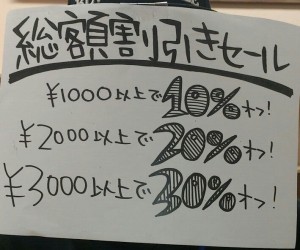 総額割引きセール
¥1000以上で10%オフ!
¥2000以上で20%オフ!
¥3000以上で30%オフ!